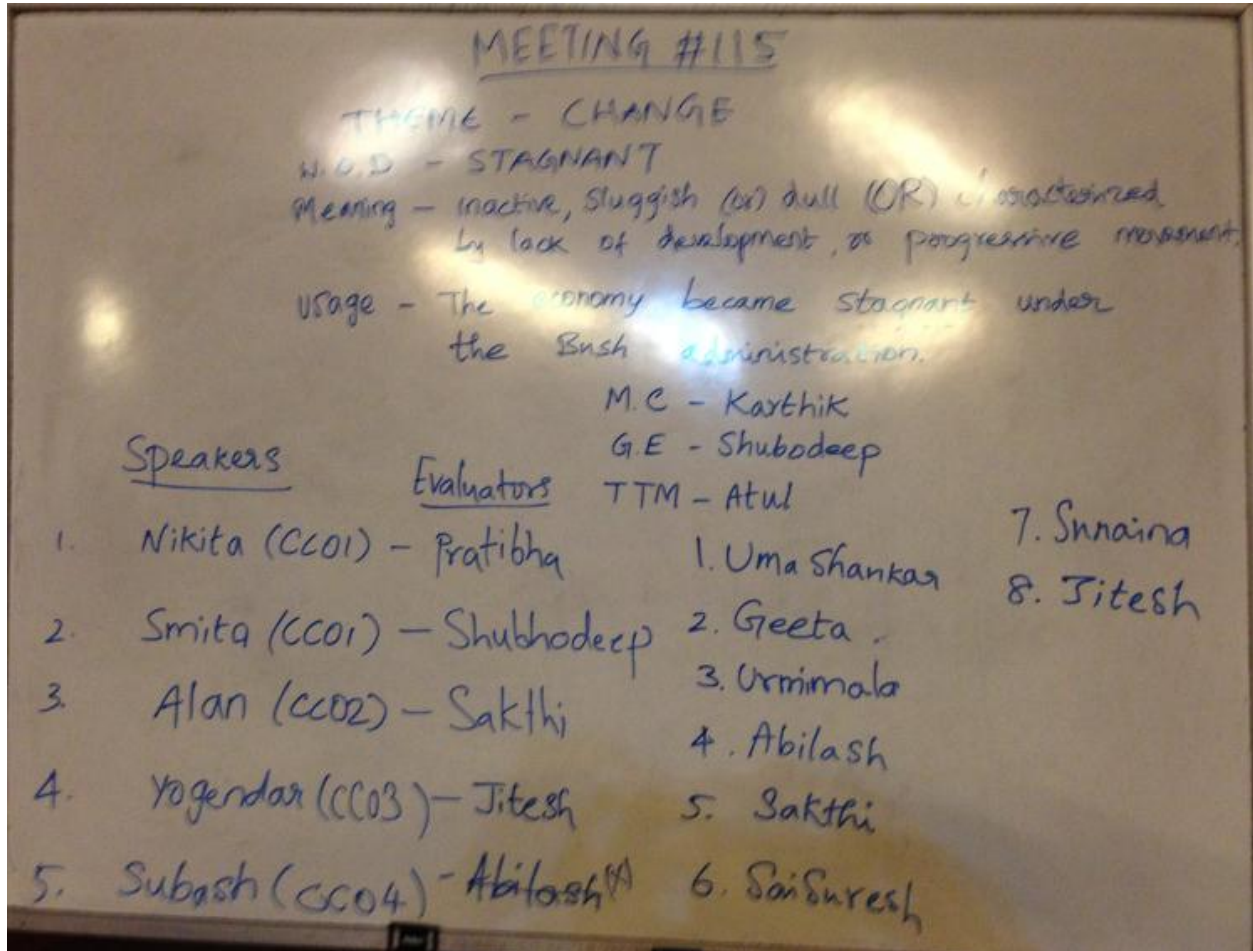 MEETING #115
THEME - CHANGE
W.O.D - STAGNANT
Meaning - inactive, Sluggish (or) dull (OR) characterized
by lack of development, or progressive movement.
Usage - The economy became stagnant under
the Bush administration.
M.C - Karthik
G.E - Shubodeep
TTM - Atul
Speakers Evaluators
1. Nikita (CC01) - Pratibha
2. Smita (CC01) - Shubhodeep
3. Alan (CC02) - Sakthi
4. Yogendar (CC03) - Jitesh
5. Subash (CC04) - Abilash
1. Uma Shankar
2. Geeta
3. Urmimala
4. Abilash
5. Sakthi
6. Sai Suresh
7. Sunaina
8. Jitesh